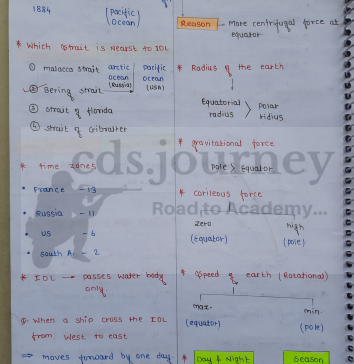 1884 (Pacific
Ocean)
* Which strait is nearest to IDL
① malacca strait arctic pacific
ocean ocean
② Bering strait (Russia) (USA)
③ strait of florida
④ strait of Gibralter
* time zones
• France - 13
• Russia - 11
• US - 6
• South A. - 2
* IDL → passes water body
only.
Q. When a ship cross the IDL
from West to east
⇒ moves forward by one day
Reason - More centrifugal force at
equator
* Radius of the earth
Equatorial > Polar
radius ridius
* gravitational force
pole > Equator
* corileous force
zero high
(Equator) (pole)
* Speed of earth (Rotational)
max. min.
(equator) (pole)
* Day & Night Season
cds.journey
Road to Academy...